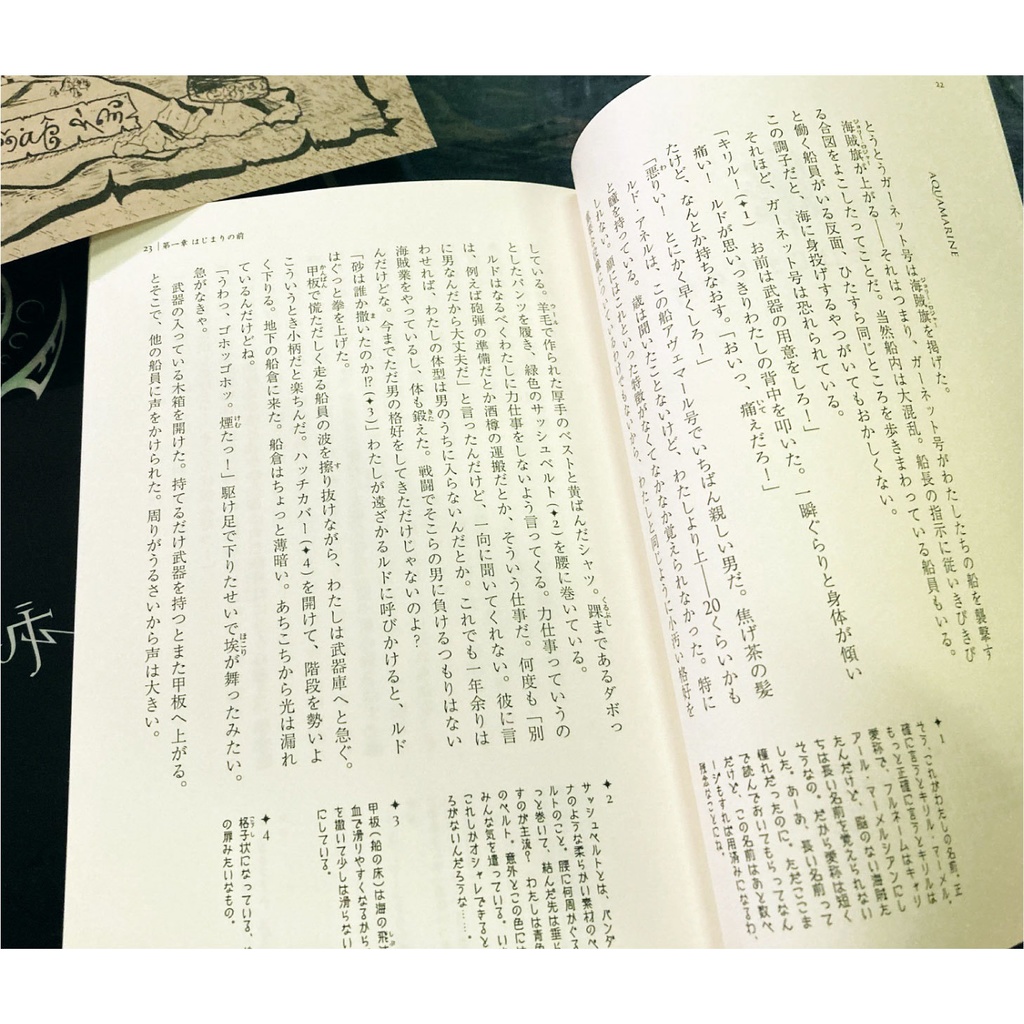 22
AQUAMARINE
とうとうガーネット号は海賊旗を掲げた。
海賊旗が上がる――それはつまり、ガーネット号がわたしたちの船を襲撃す
る合図をよこしたってことだ。当然船内は大混乱。船長の指示に従いきびきび
と働く船員がいる反面、ひたすら同じところを歩きまわっている船員もいる。
この調子だと、海に身投げするやつがいてもおかしくない。
それほど、ガーネット号は恐れられている。
「キリル！（✦1） お前は武器の用意をしろ！」
痛い！ ルドが思いっきりわたしの背中を叩いた。一瞬ぐらりと身体が傾い
たけど、なんとか持ちなおす。「おいっ、痛えだろ！」
「悪りい！ とにかく早くしろ！」
ルド アネルは、この船アヴェマール号でいちばん親しい男だ。焦げ茶の髪
と瞳を持っている。歳は聞いたことないけど、わたしより上――20くらいかも
しれない。顔にはこれといった特徴がなくてなかなか覚えられなかった。特に
✦1
そう、これがわたしの名前。正
確に言うとキリル・マーメル。
もっと正確に言うとキリルは
愛称で、フルネームはキャリ
アール・マーメルシアンにし
たんだけど、脳のない海賊た
ちは長い名前を覚えられない
そうなの。だから愛称は短く
した。あーあ、長い名前って
憧れだったのに。ただここま
で読んでおいてもらってなん
だけど、この名前はあと数ペ
ージもすれば用済みになるわ、
残念なことにね。
23｜第一章 はじまりの前
している。羊毛で作られた厚手のベストと黄ばんだシャツ。踝まであるダボっ
としたパンツを履き、緑色のサッシュベルト（✦2）を腰に巻いている。
ルドはなるべくわたしに力仕事をしないよう言ってくる。力仕事っていうの
は、例えば砲弾の準備だとか酒樽の運搬だとか、そういう仕事だ。何度も「別
に男なんだから大丈夫だ」と言ったんだけど、一向に聞いてくれない。彼に言
わせれば、わたしの体型は男のうちに入らないんだとか。これでも一年余りは
海賊業をやっているし、体も鍛えた。戦闘でそこらの男に負けるつもりはない
んだけどな。今までただ男の格好をしてきただけじゃないのよ？
「砂は誰か撒いたのか!?（✦3）」わたしが遠ざかるルドに呼びかけると、ルド
はぐっと拳を上げた。
甲板で慌ただしく走る船員の波を擦り抜けながら、わたしは武器庫へと急ぐ。
こういうとき小柄だと楽ちんだ。ハッチカバー（✦4）を開けて、階段を勢いよ
く下りる。地下の船倉に来た。船倉はちょっと薄暗い。あちこちから光は漏れ
ているんだけどね。
「うわっ、ゴホッゴホッ。煙たっ！」駆け足で下りたせいで埃が舞ったみたい。
急がなきゃ。
武器の入っている木箱を開けた。持てるだけ武器を持つとまた甲板へ上がる。
とそこで、他の船員に声をかけられた。周りがうるさいから声は大きい。
✦2
サッシュベルトとは、バンダ
ナのような柔らかい素材のベ
ルトのこと。腰に何周かぐる
っと巻いて、結んだ先は垂
すのが主流？ わたしは青色
のベルト。意外とこの色には
みんな気を遣っている。い
これしかオシャレできると
ろがないんだろうな……。
✦3
甲板（船の床）は海の飛
血で滑りやすくなるから
を撒いて少しは滑らない
にしている。
✦4
格子状になっている、
の扉みたいなもの。